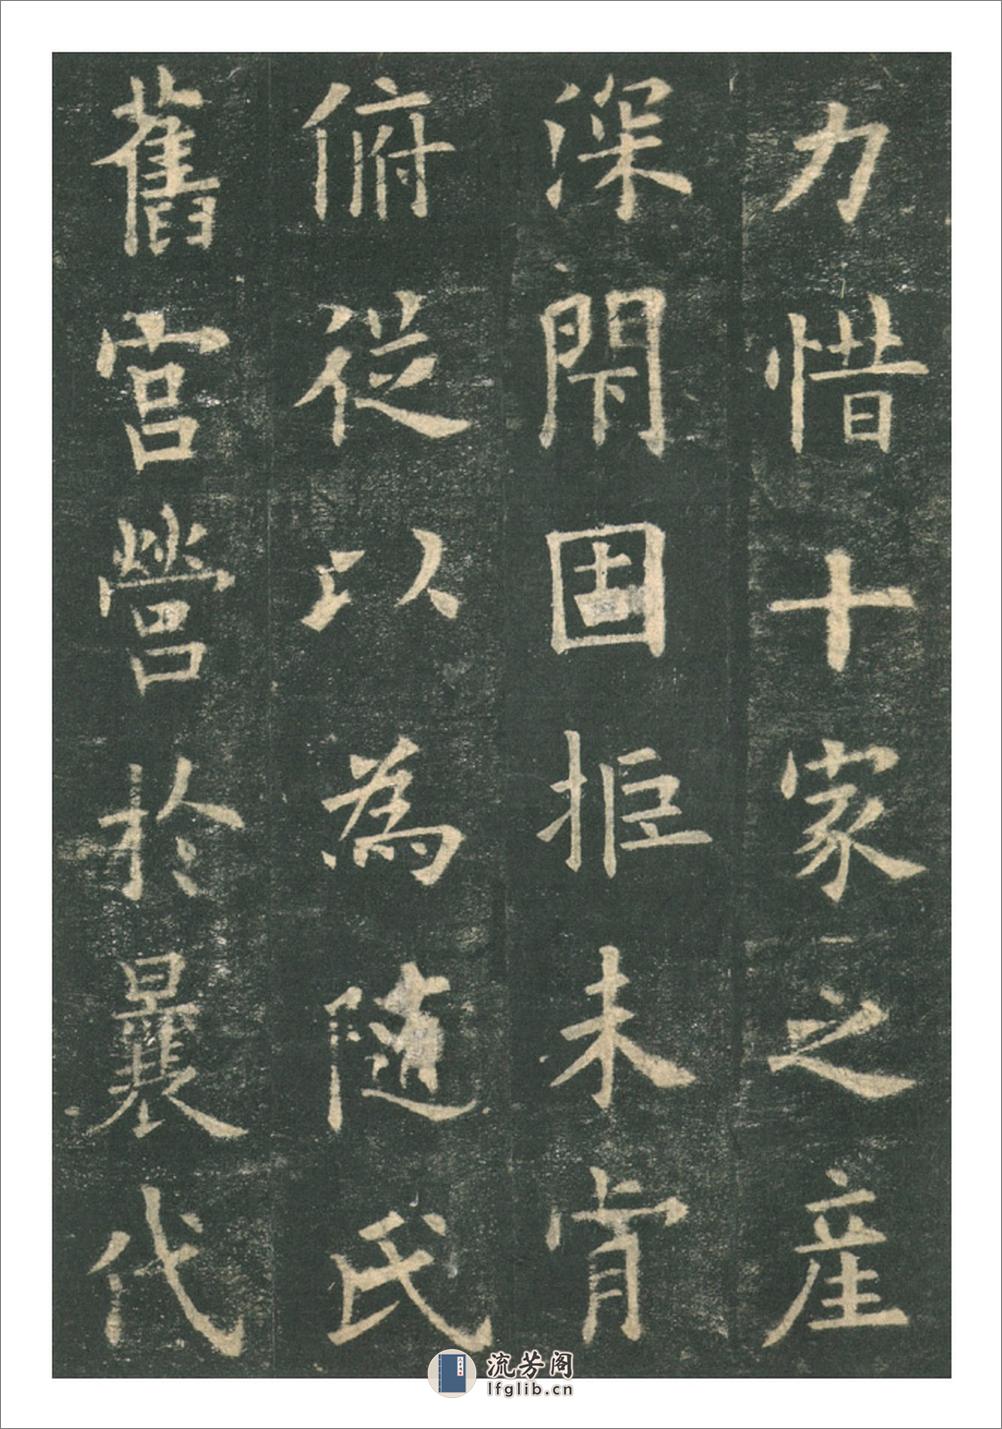 力惜十家之産
深閇固拒未肯
俯從以為随氏
舊宮營於曩代
流芳阁
lfglib.cn